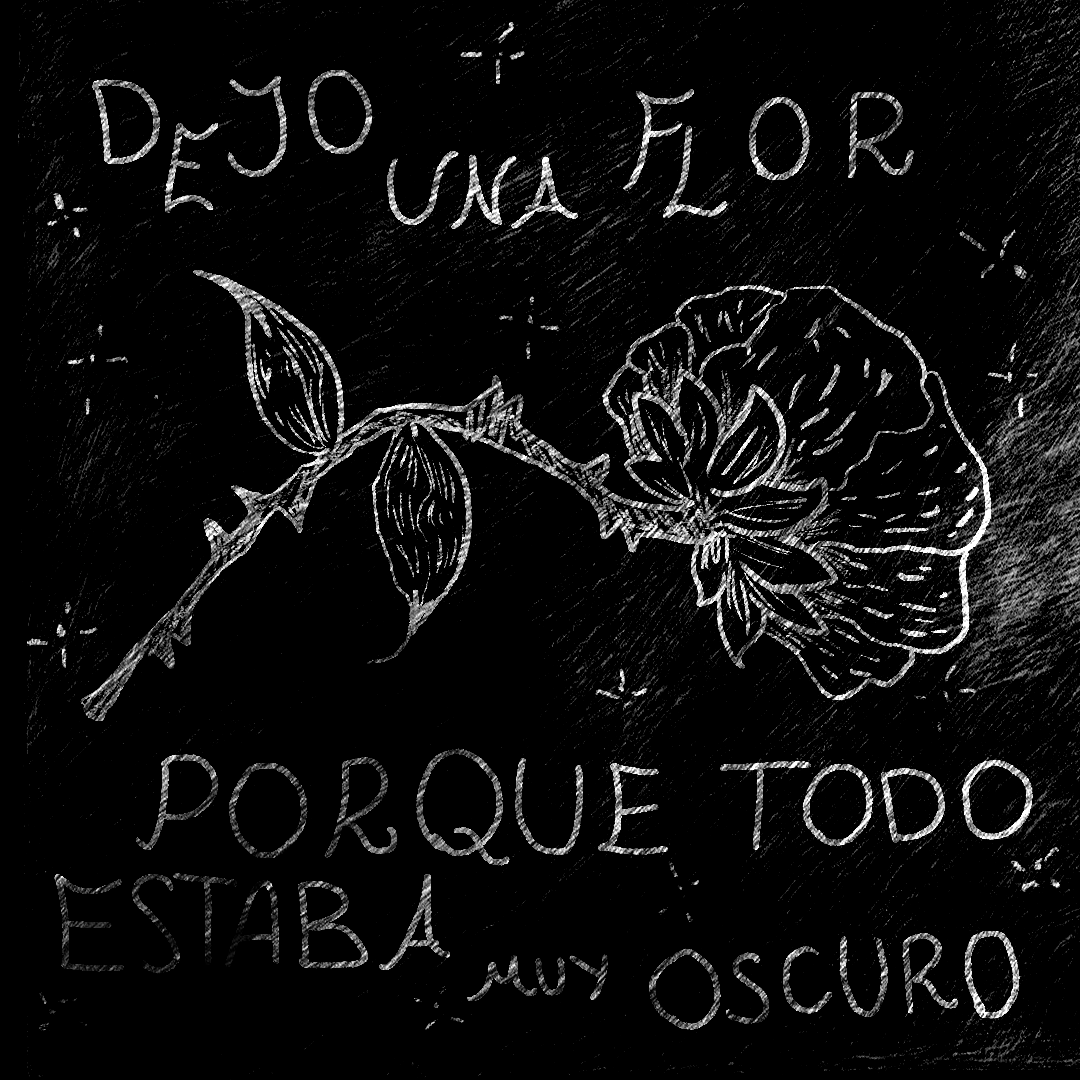 DEJO UNA FLOR
PORQUE TODO
ESTABA MUY OSCURO